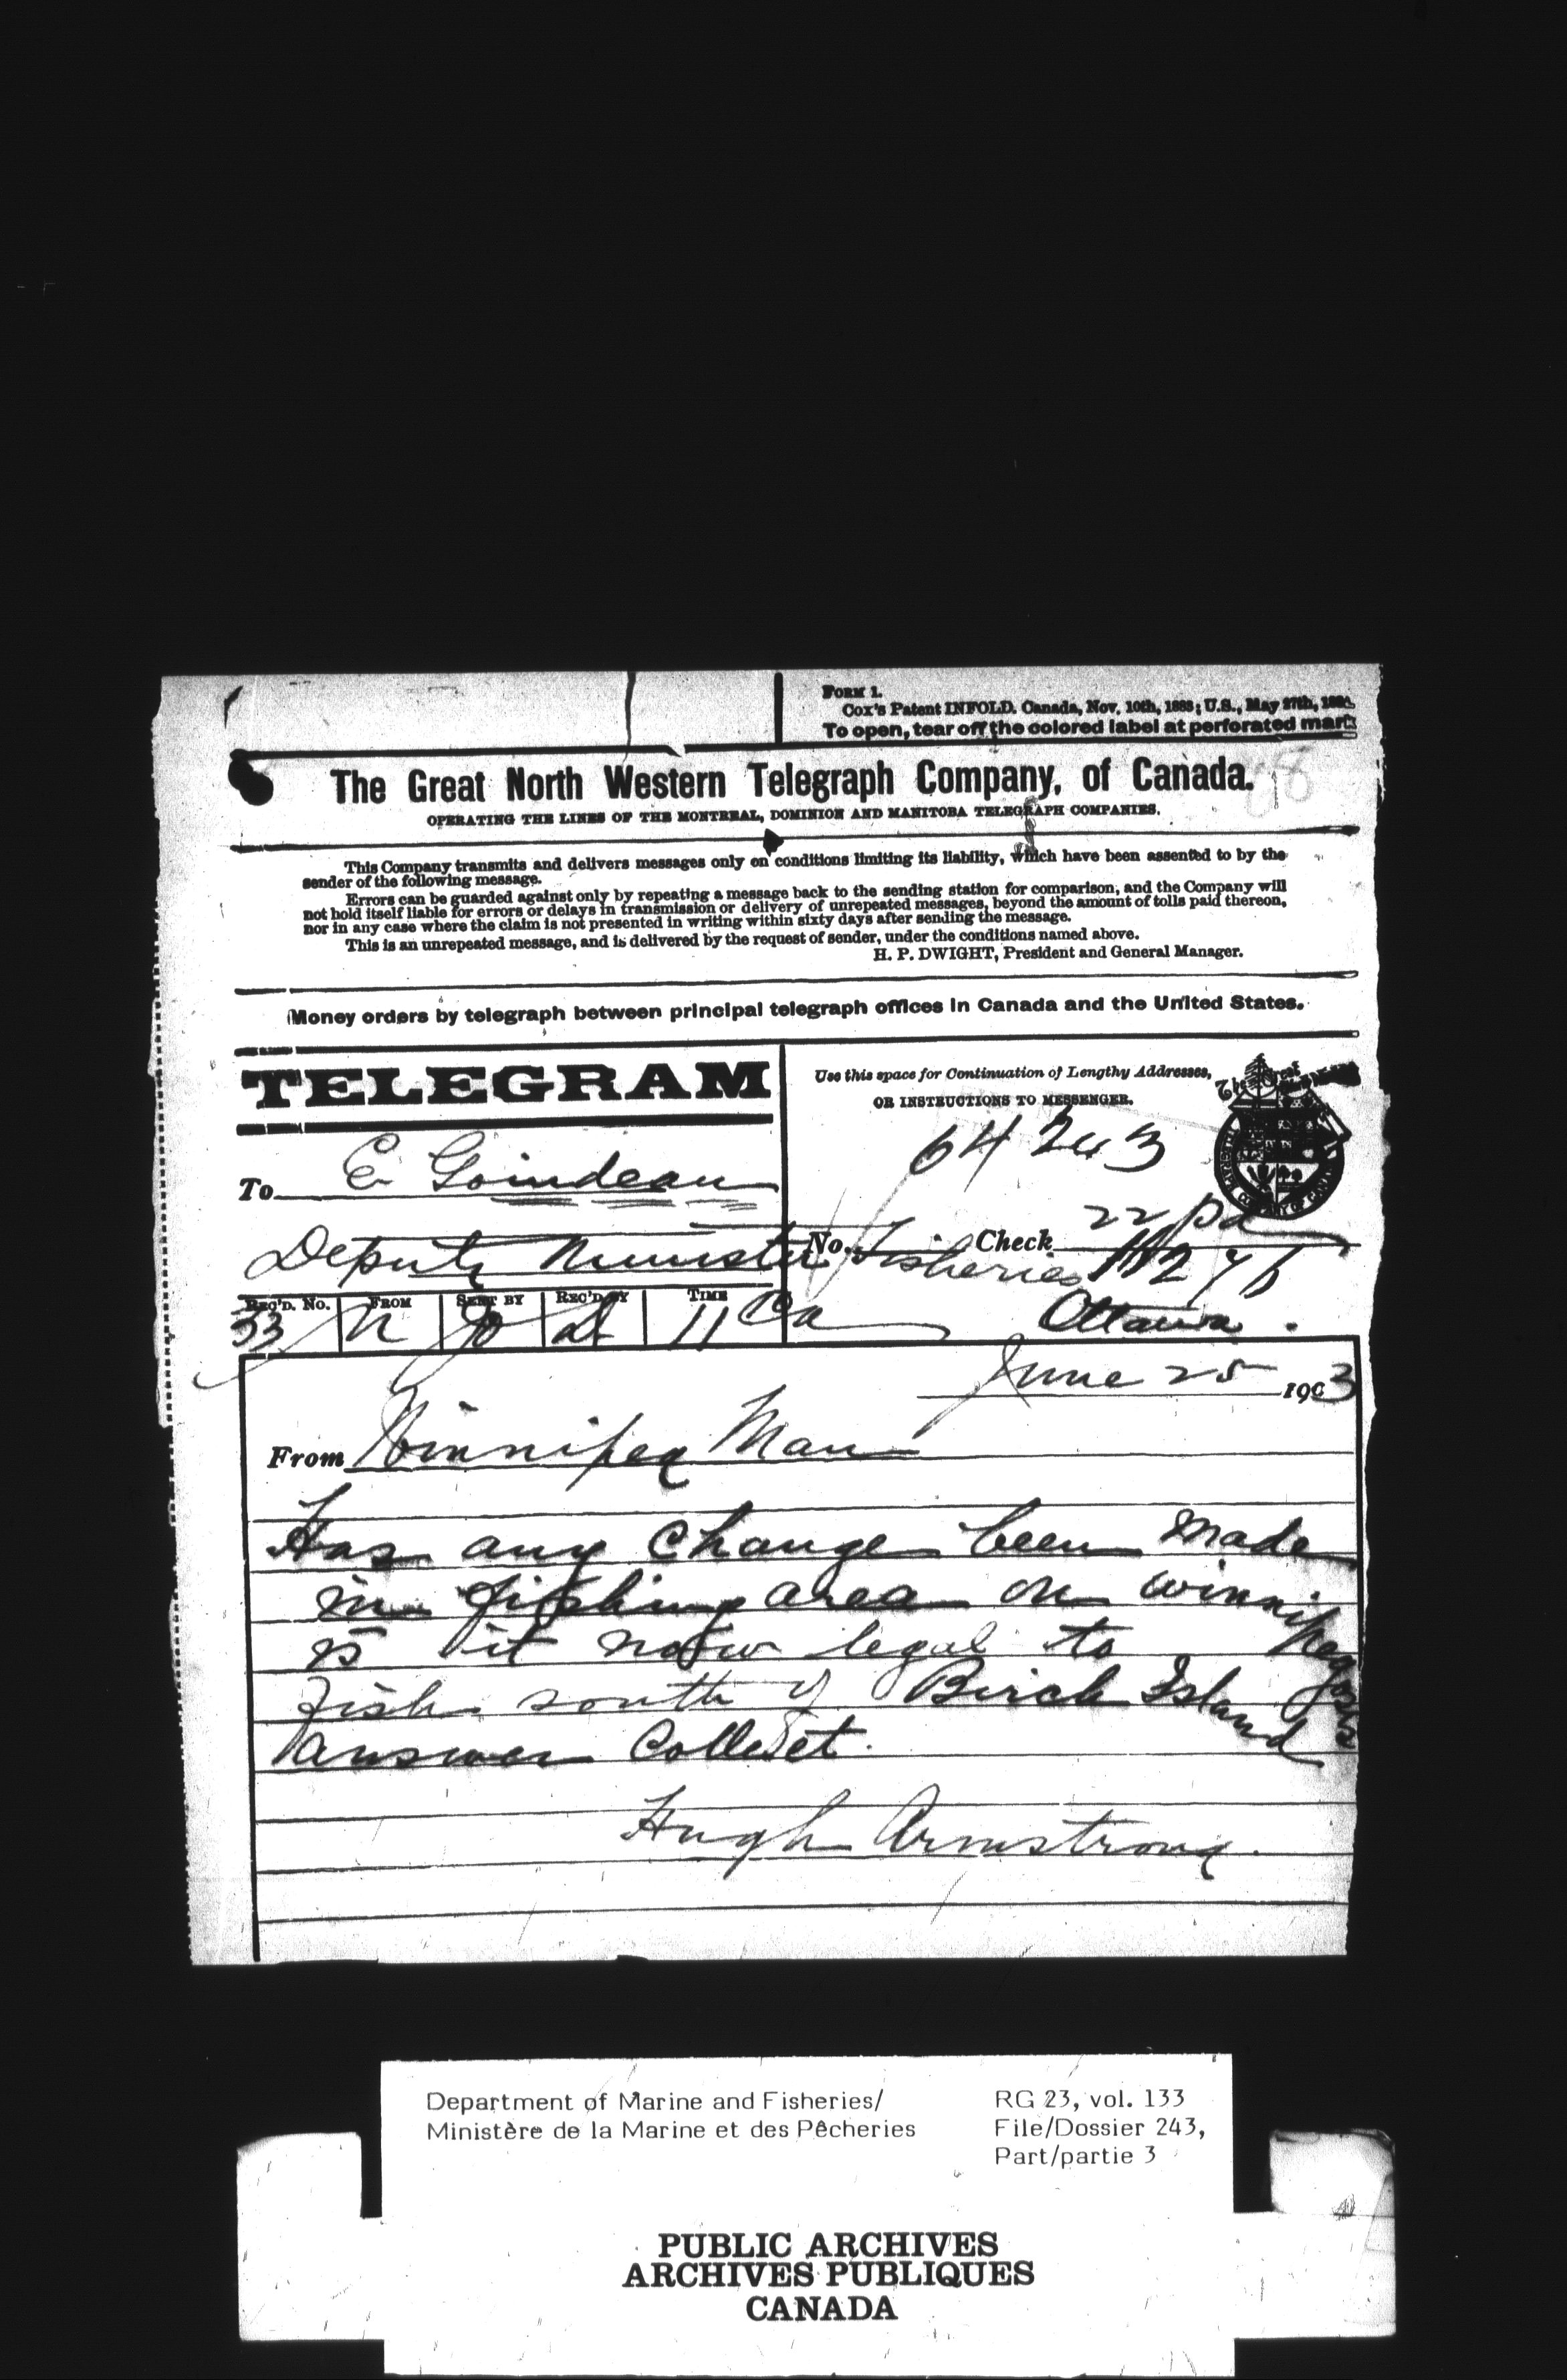 FORM 1.
Cox's Patent INFOLD. Canada, Nov. 10th, 1883; U.S., May 27th,
To open, tear off the colored label at perforated mark
The Great North Western Telegraph Company, of Canada.
OPERATING THE LINES OF THE MONTREAL, DOMINION AND MANITOBA TELEGRAPH COMPANIES.
This Company transmits and delivers messages only on conditions limiting its liability, which have been assented to by the
sender of the following message.
Errors can be guarded against only by repeating a message back to the sending station for comparison, and the Company will
not hold itself liable for errors or delays in transmission or delivery of unrepeated messages, beyond the amount of tolls paid thereon,
nor in any case where the claim is not presented in writing within sixty days after sending the message.
This is an unrepeated message, and is delivered by the request of sender, under the conditions named above.
H. P. DWIGHT, President and General Manager.
Money orders by telegraph between principal telegraph offices in Canada and the United States.
TELEGRAM
Use this space for Continuation of Lengthy Addresses,
OR INSTRUCTIONS TO MESSENGER.
To E Goindeau
No. Check 22 pd
Deputy Minister Fisheries
Ottawa.
REC'D. No. FROM SENT BY REC'D BY TIME
33 N Jo 11
June 25 1903
From Winnipeg Man
Has any change been made
in fishing area on winnipegosis
is it now legal to
fish south of Birch Island
answer Collect.
Hugh Armstrong.
Department of Marine and Fisheries/
Ministère de la Marine et des Pêcheries
RG 23, vol. 133
File/Dossier 243,
Part/partie 3
PUBLIC ARCHIVES
ARCHIVES PUBLIQUES
CANADA